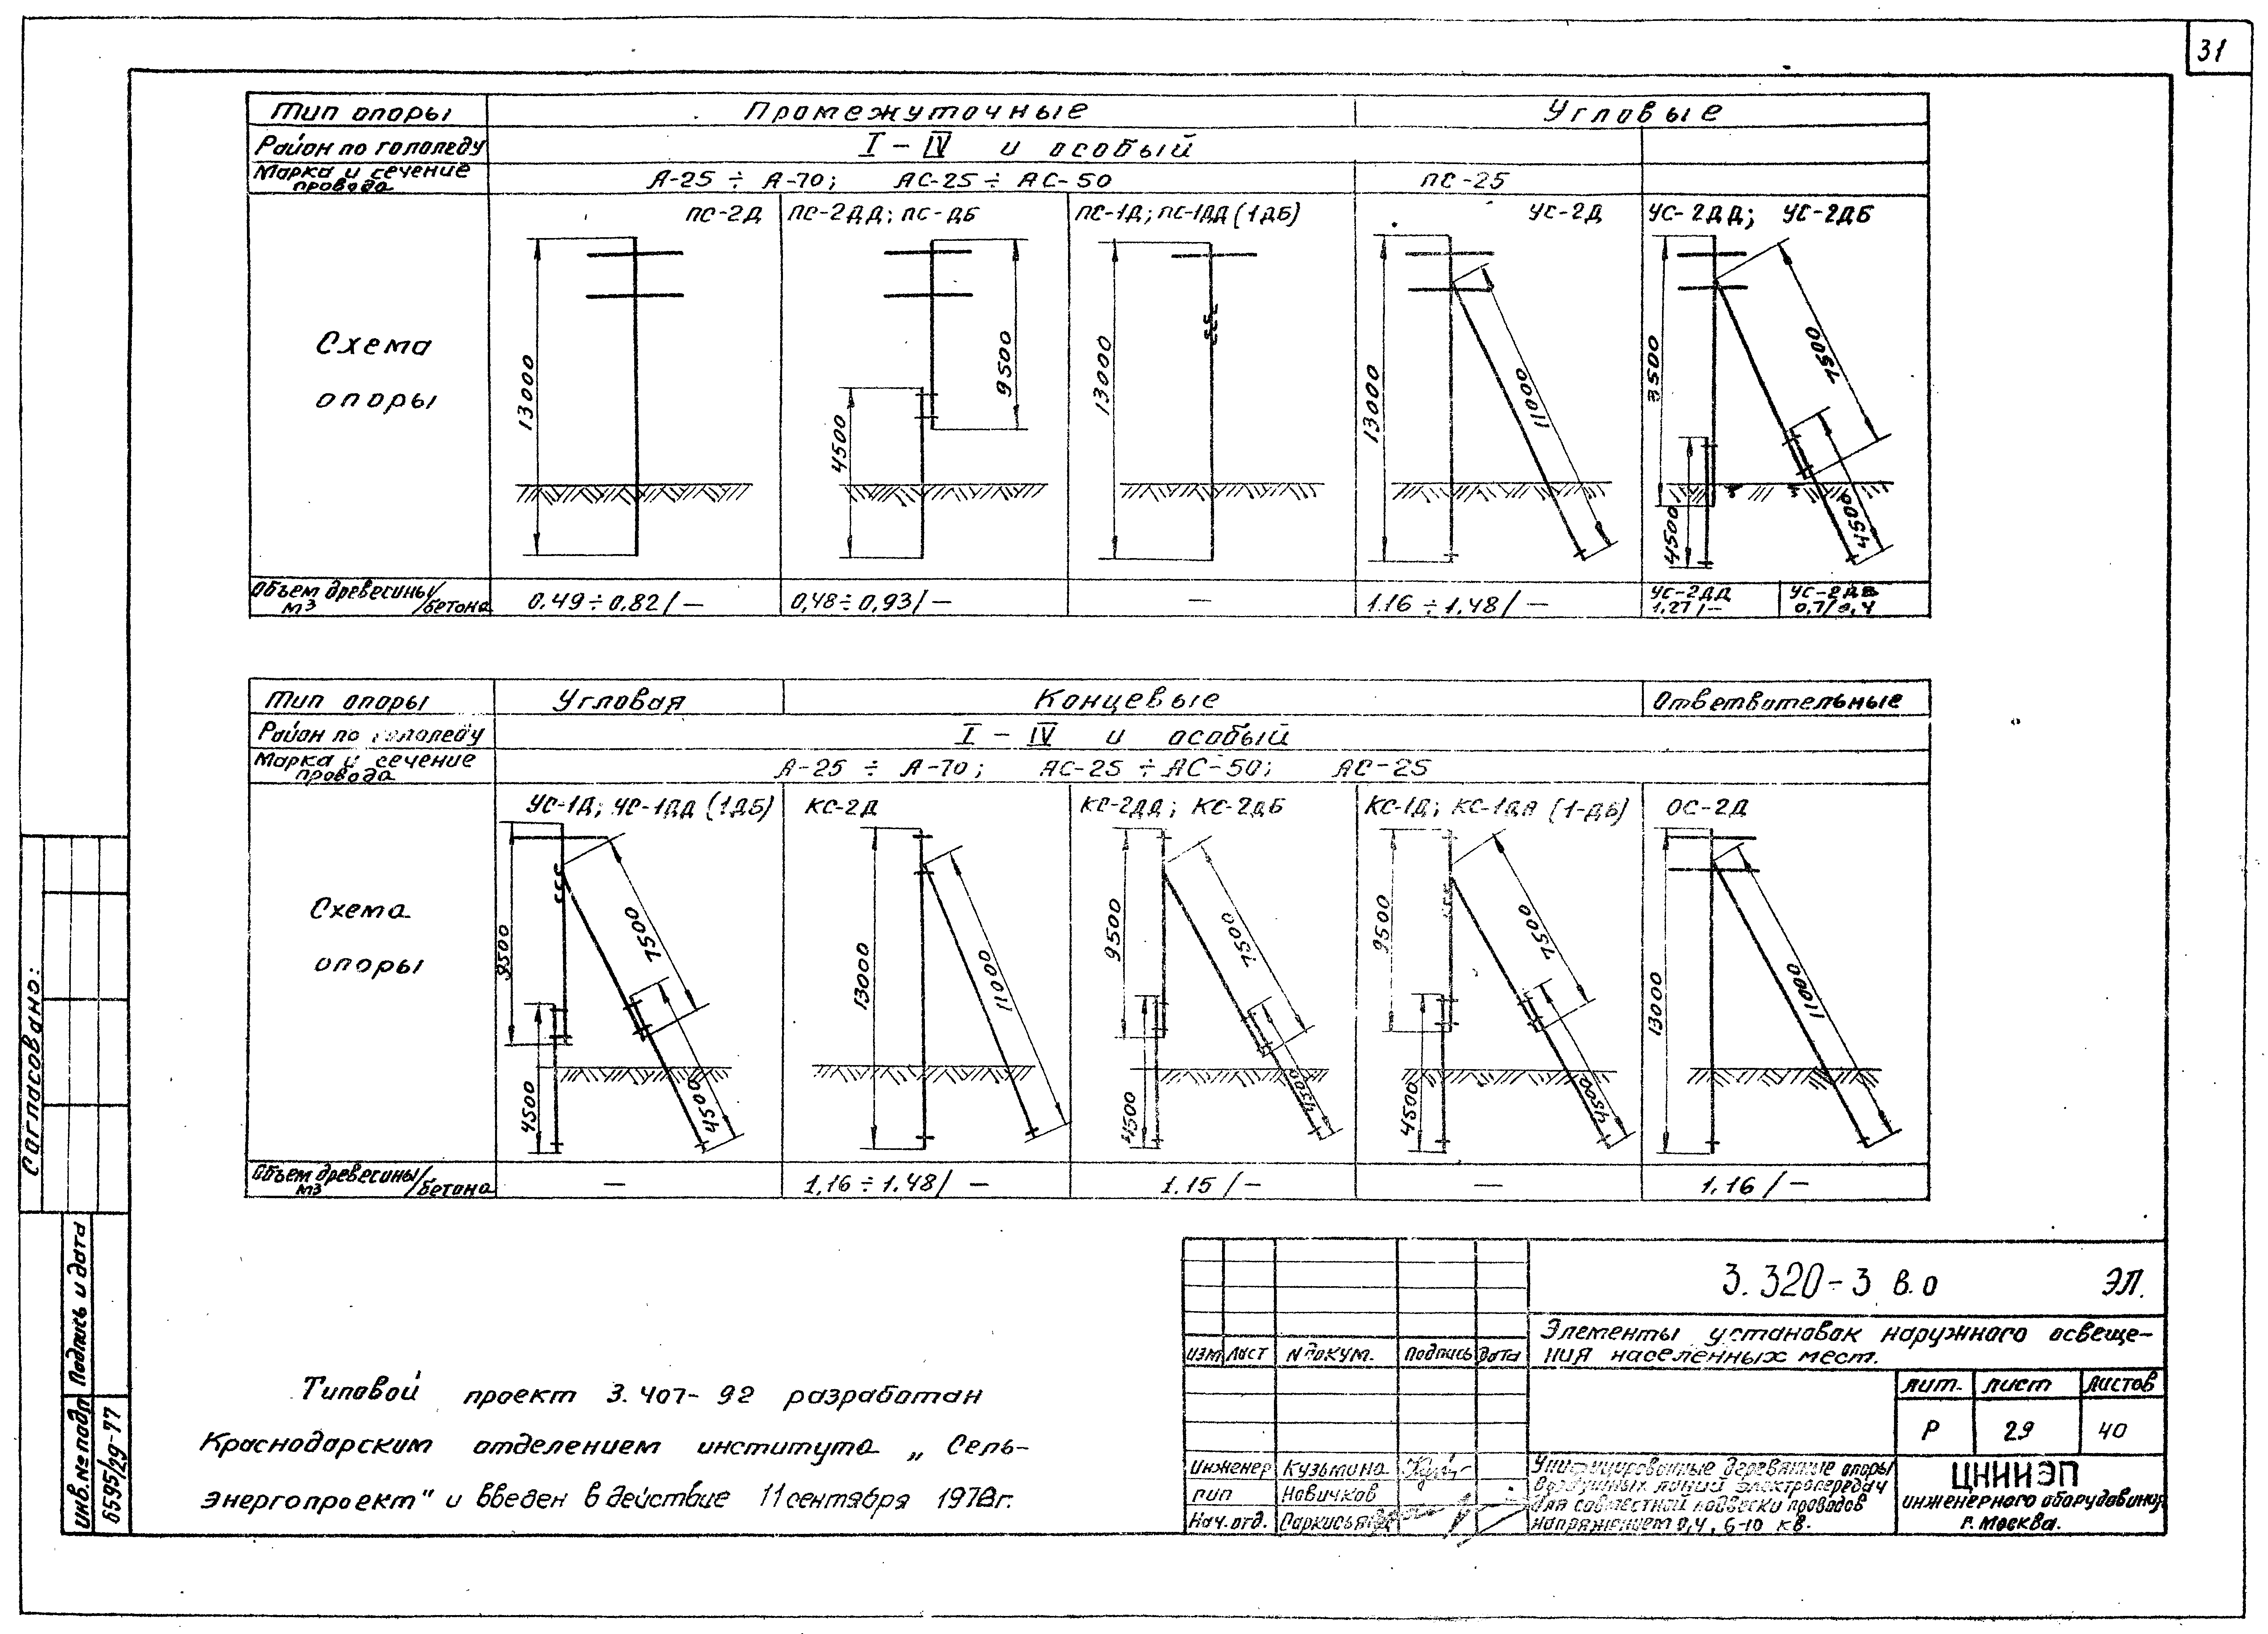 31
Тип опоры Промежуточные Угловые
Район по гололеду I – IV и особый
Марка и сечение провода А-25 ÷ А-70; АС-25 ÷ АС-50 ПС-25
ПС-2Д ПС-2ДД; ПС-ДБ ПС-1Д; ПС-1ДД (1ДБ) УС-2Д УС-2ДД; УС-2ДБ
Схема
опоры
13000 4500 9500 13000 13000 11000 3500 4500 7500 4500
Объем древесины/бетона м3 0,49÷0,82/— 0,48÷0,93/— — 1.16 ÷ 1,48/— УС-2ДД 1,27/— УС-2ДВ 0,7/0,4
Тип опоры Угловая Концевые Ответвительные
Район по гололеду I – IV и особый
Марка и сечение провода А-25 ÷ А-70; АС-25 ÷ АС-50; АС-25
УС-1Д; УС-1ДД (1ДБ) КС-2Д КС-2ДД; КС-2ДБ КС-1Д; КС-1ДД (1-ДБ) ОС-2Д
Схема
опоры
9500 4500 7500 4500 13000 11000 9500 4500 7500 4500 9500 4500 7500 4500 13000 11000
Объем древесины/бетона м3 — 1,16 ÷ 1.48/ — 1.15/— — 1,16/—
Типовой проект 3.407-92 разработан
Краснодарским отделением института „Сель-
энергопроект" и введен в действие 11 сентября 1978г.
Согласовано:
Подпись и дата
Инв.№ подл
6595/29-77
3.320-3 в.0 ЭЛ.
Элементы установок наружного освеще-
ния населенных мест.
Изм Лист N докум. Подпись Дата
лит. лист листов
Р 29 40
Инженер Кузьмина
ГИП Новичков
Нач.отд. Саркисьян
Унифицированные деревянные опоры
воздушных линий электропередач
для совместной подвески проводов
напряжением 0,4, 6-10 кв.
ЦНИИЭП
инженерного оборудования
г. Москва.